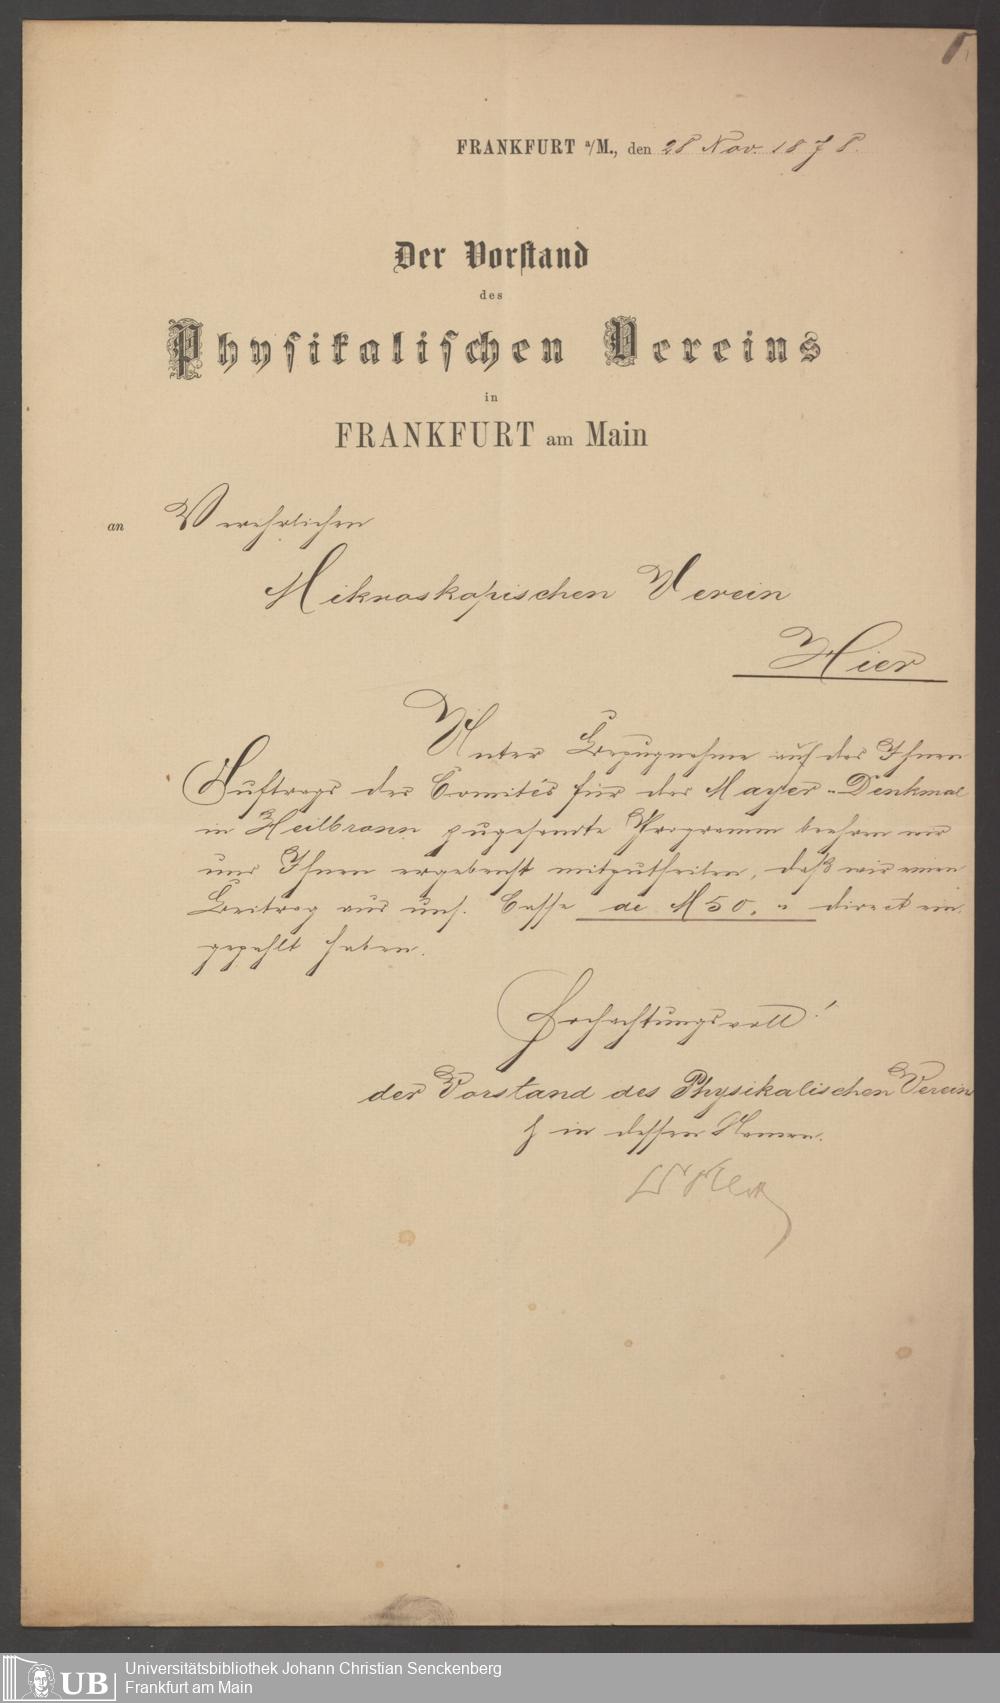 FRANKFURT a/M., den 28 Nov. 1878.
Der Vorstand
des
Physikalischen Vereins
in
FRANKFURT am Main
an Verehrlichen
Mikroskopischen Verein
Hier
Unter Bezugnahme auf das Ihnen
Auftrags des Comités für das Mayer-Denkmal
in Heilbronn zugesandte Programm beehren wir
uns Ihnen ergebenst mitzutheilen, daß wir einen
Beitrag aus uns. Casse de M 50,- direct ein-
gezahlt haben.
Hochachtungsvoll!
der Vorstand des Physikalischen Vereins
in dessen Namen.
UB
Universitätsbibliothek Johann Christian Senckenberg
Frankfurt am Main